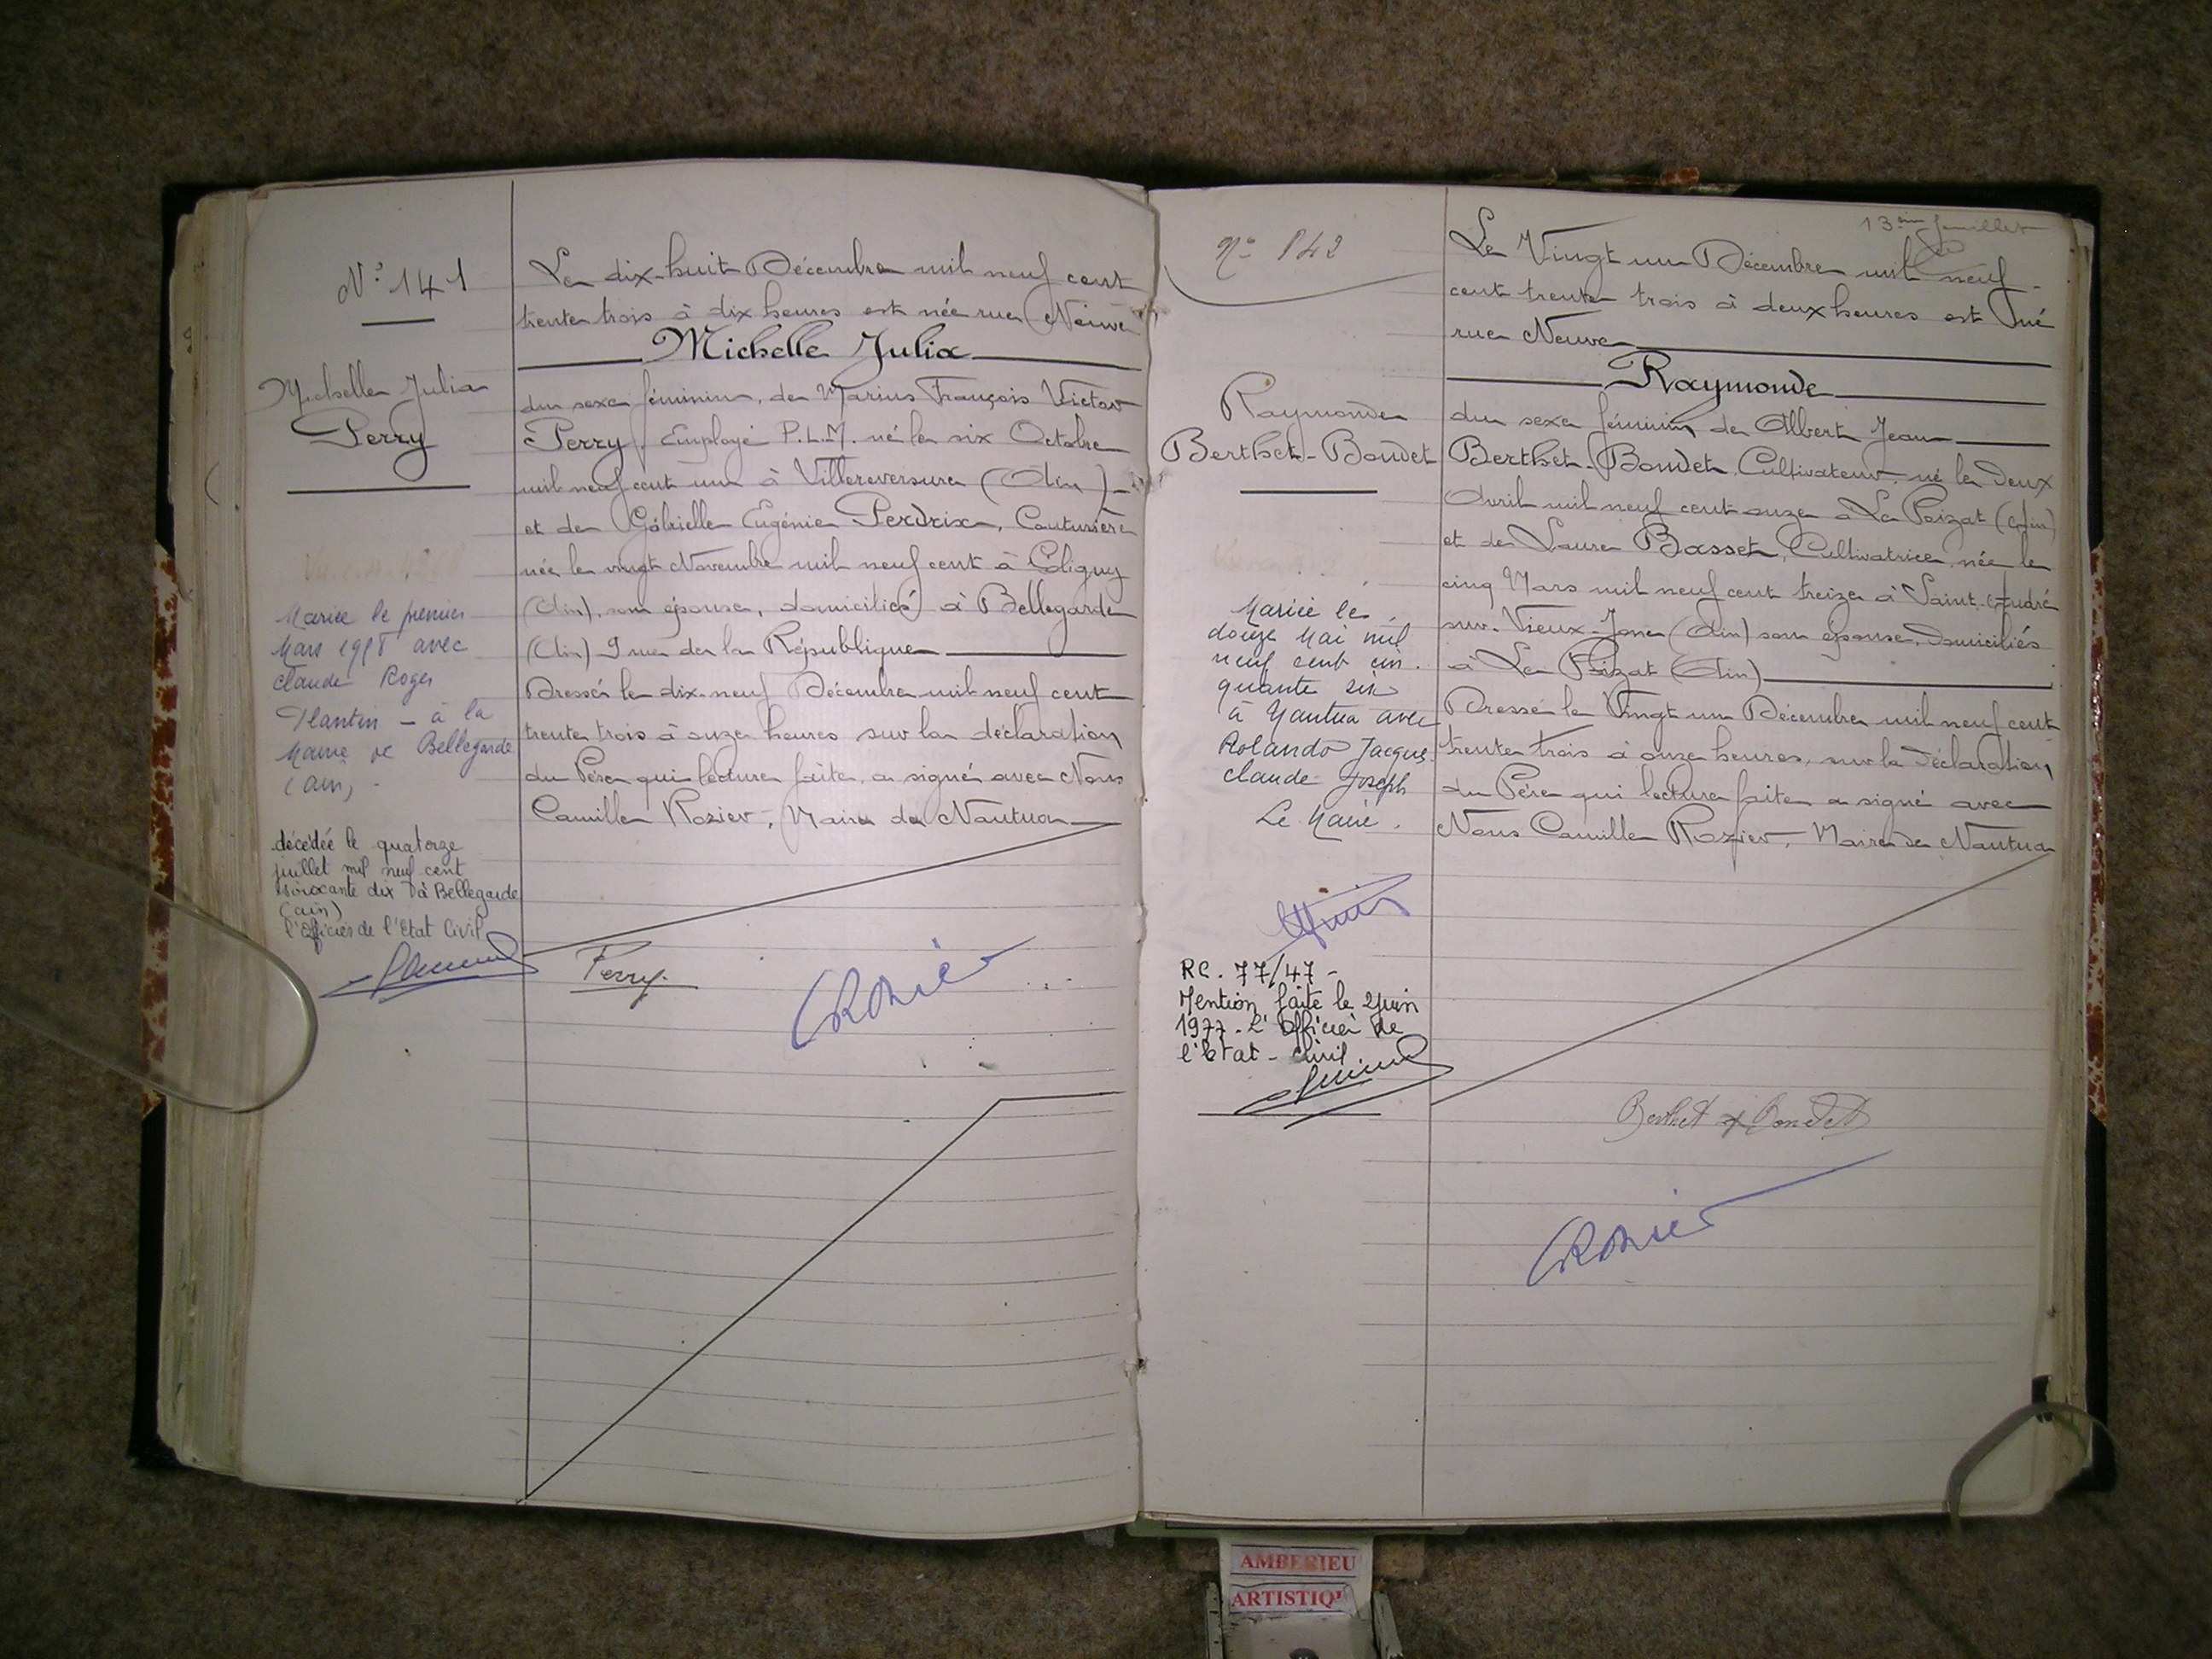 N° 141
Michelle Julia
Perry
Mariée le premier
Mars 1958 avec
Claude Roger
Plantin - à la
Mairie de Bellegarde
(Ain) -
décédée le quatorze
juillet mil neuf cent
soixante dix à Bellegarde
(ain)
l'officier de l'Etat Civil
Le dix-huit Décembre mil neuf cent
trente trois à dix heures est née rue Neuve
Michelle Julia
du sexe féminin, de Marius François Victor
Perry, Employé P.L.M. né le six Octobre
mil neuf cent un à Villereversure (Ain)
et de Gabrielle Eugénie Perdrix, Couturière
née le vingt Novembre mil neuf cent à Coligny
(Ain), son épouse, domiciliés à Bellegarde
(Ain) 9 rue de la République
Dressé le dix-neuf Décembre mil neuf cent
trente trois à onze heures sur la déclaration
du Père qui lecture faite, a signé avec Nous
Camille Rozier, Maire de Nantua
Perry
CRozier
13ème feuillet
N° 142
Raymonde
Berthet-Bondet
Mariée le
douze Mai mil
neuf cent cin-
quante six
à Nantua avec
Rolando Jacques
Claude Joseph
Le Maire.
RC. 77/47 -
Mention faite le 2 Juin
1977 - L'Officier de
l'Etat - Civil
Le Vingt un Décembre mil neuf
cent trente trois à deux heures est né
rue Neuve
Raymonde
du sexe féminin, de Albert Jean
Berthet-Bondet, Cultivateur, né le Deux
Avril mil neuf cent onze à Le Poizat (Ain)
et de Laure Basset, Cultivatrice, née le
cinq Mars mil neuf cent treize à Saint-André
sur-Vieux-Jonc (Ain) son épouse, domiciliés
à Le Poizat (Ain)
Dressé le Vingt un Décembre mil neuf cent
trente trois à onze heures, sur la déclaration
du Père qui lecture faite a signé avec
Nous Camille Rozier, Maire de Nantua
Berthet Bondet
CRozier
AMBERIEU
ARTISTIQ